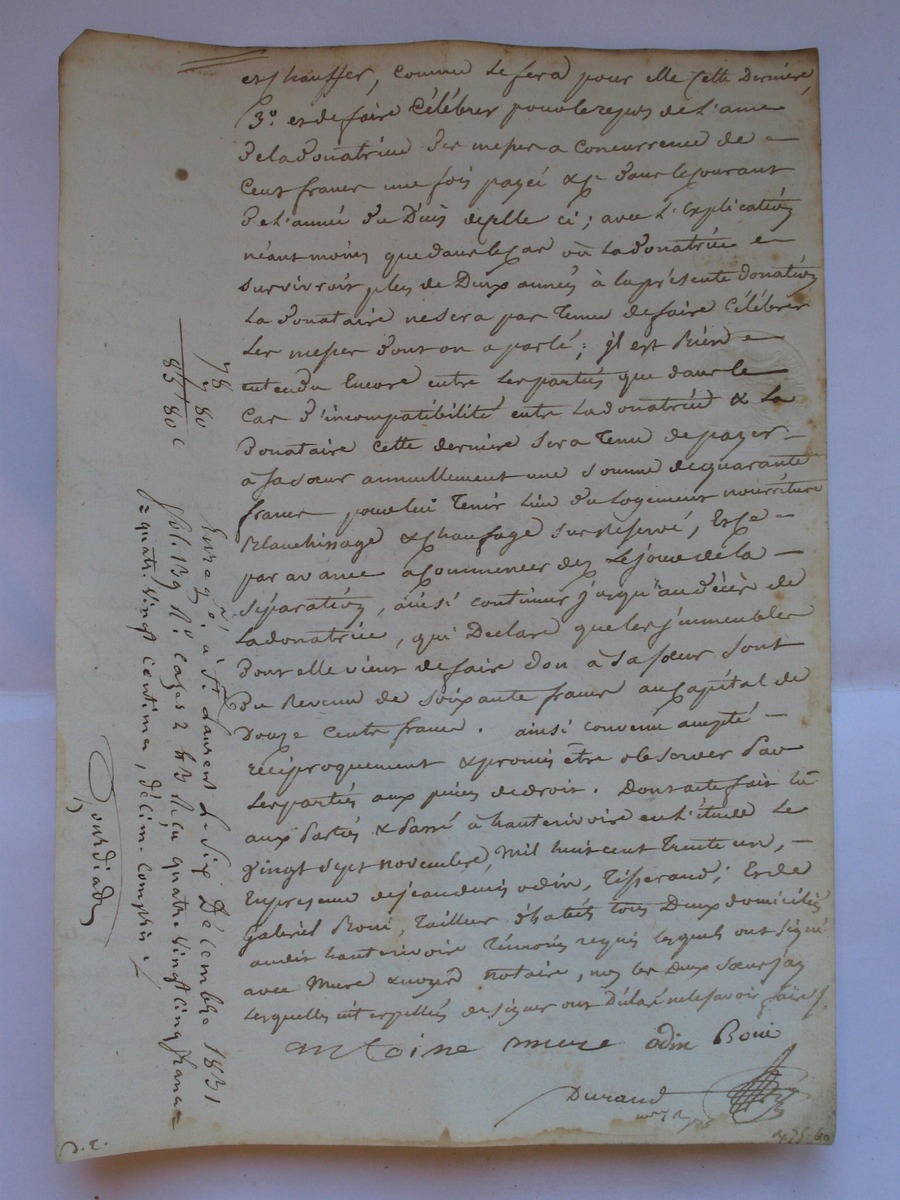 et chauffer, comme le fera pour elle cette dernière,
3.o et de faire célébrer pour le repos de l'ame
de la donatrice des messes a concurrence de =
cent francs une fois payée & ce dans le courant
de l'année du décès d'icelle ci; avec l'explication
néant moins que dans le cas où la donatrice =
survivroit plus de deux années à la présente donation
la donataire ne sera pas tenue de faire célébrer
les messes dont on a parlé; il est bien =
entendu encore entre les parties que dans le
cas d'incompatibilité entre la donatrice & la
donataire cette dernière sera tenue de payer =
à sa sœur annuellement une somme de quarante
francs pour lui tenir lieu du logement nourriture
blanchissage & chaufage sus réservé, et ce =
par avance a commencer dez le jour de la =
séparation, ainsi continuer jusqu'au décès de
la donatrice, qui déclare que les immeubles
dont elle vient de faire don à sa sœur sont
du revenu de soixante francs au capital de
douze cents francs. ainsi convenu accepté =
réciproquement & promis être observer par
les parties aux peines de droit. Dont acte fait lû
aux parties & passé à hauterivoire en l'étude le
vingt sept novembre, mil huit cent trente un, =
En présence de jean denis odin, tisserand; et de
gabriel Boni, tailleur d'habits tous deux domiciliés
audit hauterivoire témoins requis lesquels ont signé
avec mure & notaire, non les deux sœurs
lesquelles interpellées de signer ont déclaré ne le savoir faire /.
antoine mure odin Boni
Durand
n.re
78
7 80
85 80 c
Enreg.é à St. Laurent le six Décembre 1831
fol. 139 r.o cazes 2 & 3 Reçu quatre vingt cinq francs =
= quatre vingt centimes, décime compris /.
Gourdiad